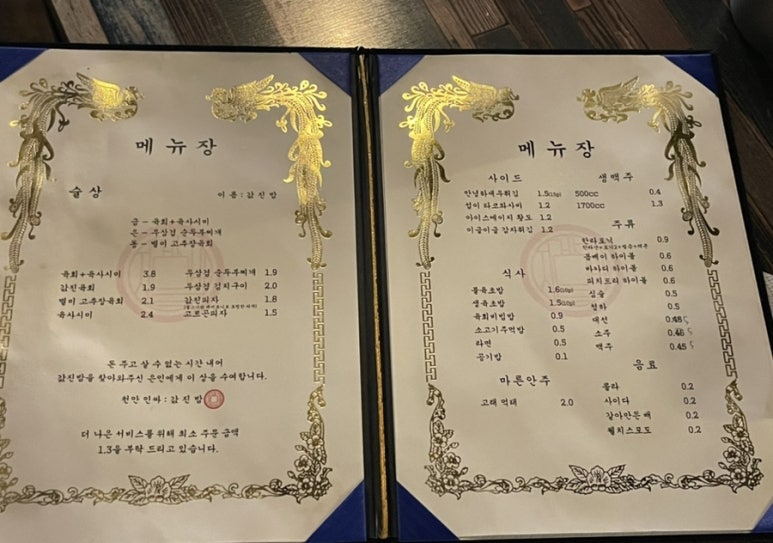 메뉴장
술상
이름 : 값진밤
금 - 육회+육사시미
은 - 우삼겹 순두부찌개
동 - 별미 고추장육회
육회+육사시미 3.8 우삼겹 순두부찌개 1.9
값진육회 1.9 우삼겹 김치구이 2.0
별미 고추장육회 2.1 값진피자 1.8
육사시미 2.4 고르곤피자 1.5
돈 주고 살 수 없는 시간 내어
값진밤을 찾아와주신 은인에게 이 상을 수여합니다.
천만 인싸 : 값진밤
더 나은 서비스를 위해 최소 주문 금액
1.3을 부탁 드리고 있습니다.
메뉴장
사이드
안녕하새우튀김 1.5(10p)
타코와사비 1.2
아이스메이지 황도 1.2
이글이글 감자튀김 1.2
식사
불육초밥 1.6(10p)
생육초밥 1.5(10p)
육회비빔밥 0.9
소고기주먹밥 0.5
라면 0.5
공기밥 0.1
마른안주
고래 먹태 2.0
생맥주
500cc 0.4
1700cc 1.3
주류
한라토닉 0.9
봄베이 하이볼 0.6
하이볼 0.6
피치트리 하이볼 0.6
0.5
청하 0.5
매실 0.45
소주 0.45
맥주 0.45
음료
콜라 0.2
사이다 0.2
갈아만든배 0.2
웰치스포도 0.2